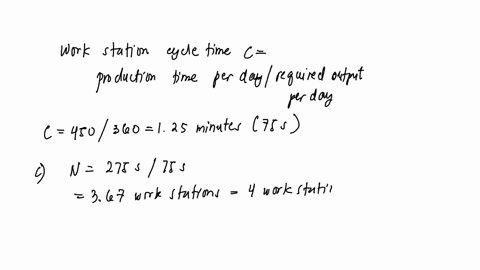 Work station cycle time C =
production time per day / required output
per day
C = 450 / 360 = 1.25 minutes (75 s)
c) N = 275 s / 75 s
= 3.67 work stations = 4 work stati